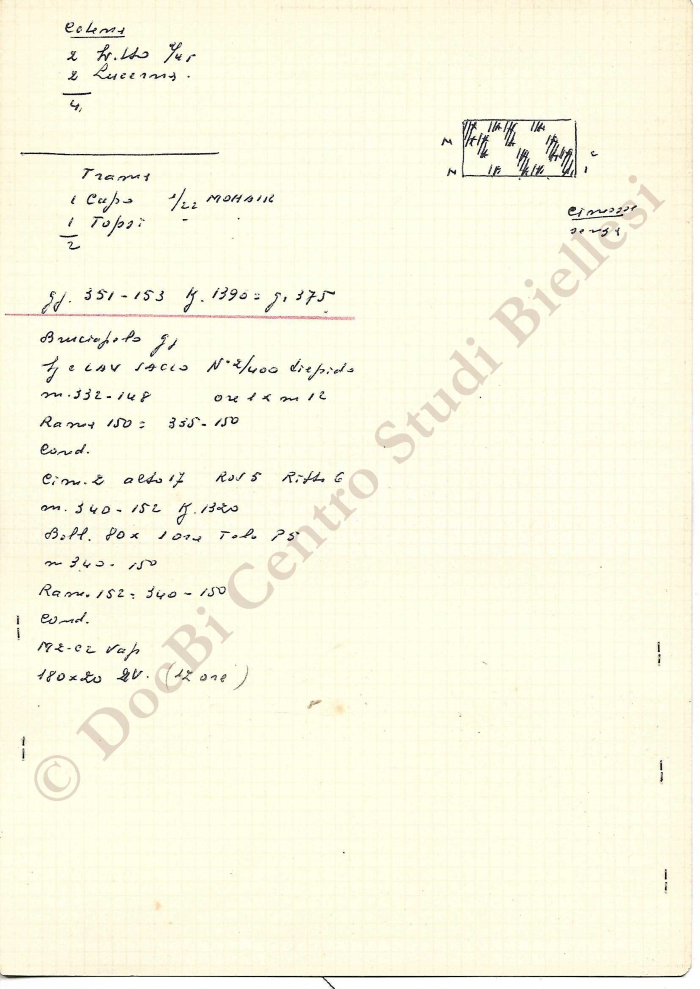 Catena
2 2/45
2 Lucerna.
4
Trama
1 Capo 1/22 MOHAIR
1 Topsi "
2
N
N
c
1
Cimossa
gj. 351-153 K. 1390 = gr 375
Bruciapelo gj
LAV SACLO N° 2/400 tiepido
m. 332-148 ore 1 x m 12
Rame 150 = 335-150
Cond.
Cim. 2 alto 17 Rot 5 Ritto 6
m. 340-152 K. 1320
Boll. 80 x 1 ora Telo P5
m 340-150
Ram. 152 = 340-150
Cond.
M2-C2 Vap
180x20 2V. (12 ore)
© DocBi Centro Studi Biellesi